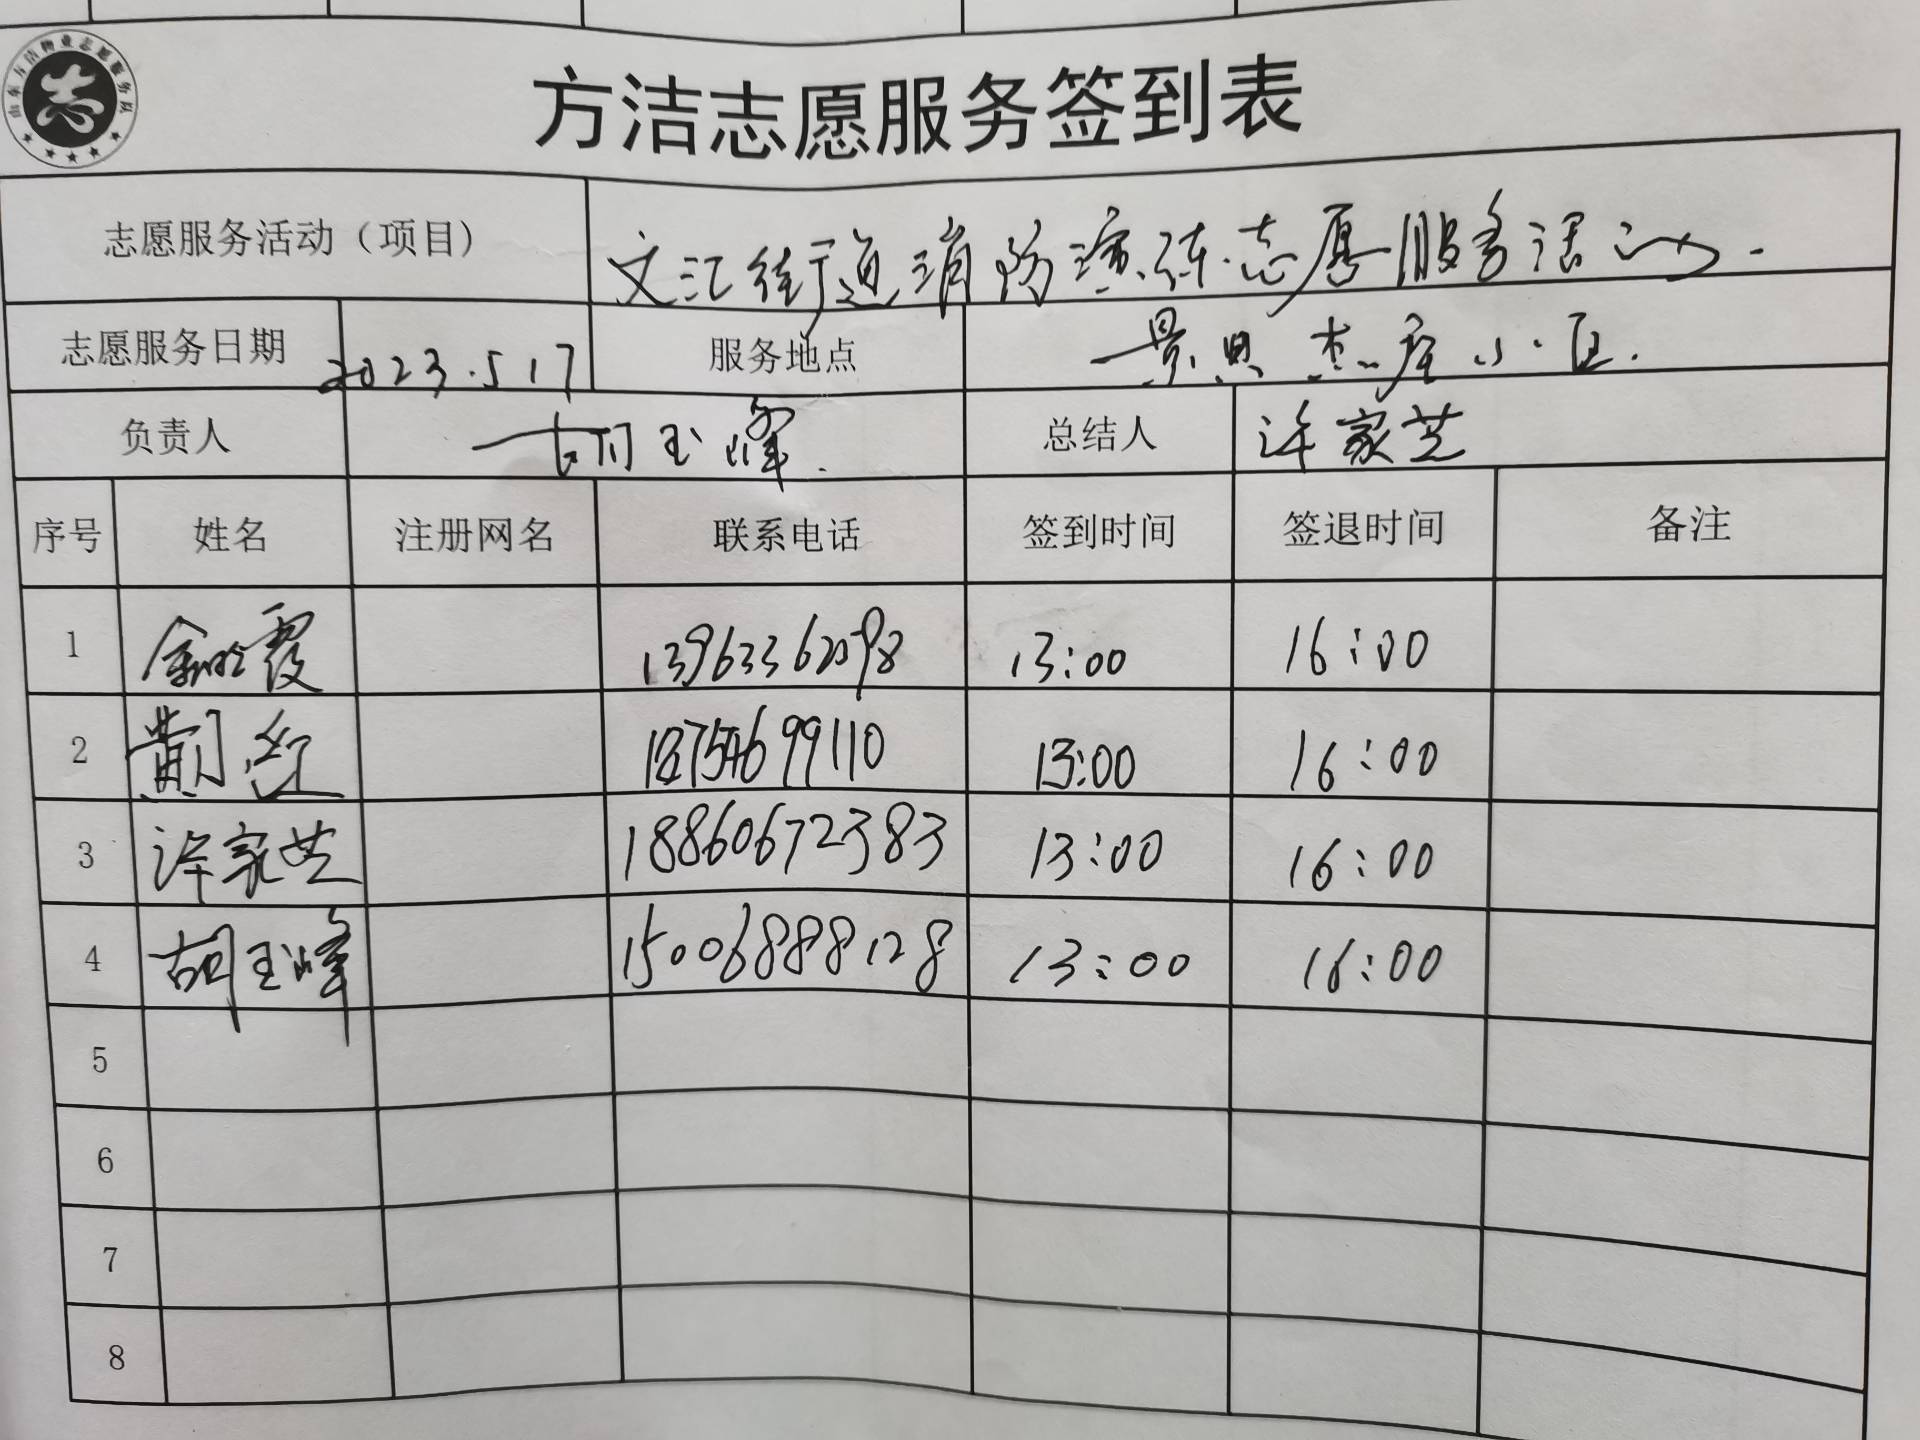 山东方洁物业志愿服务队
方洁志愿服务签到表
志愿服务活动（项目） 文汇街道消防演练志愿服务活动.
志愿服务日期 2023.5.17 服务地点 景典杰座小区.
负责人 胡玉峰. 总结人 许家芝
序号 姓名 注册网名 联系电话 签到时间 签退时间 备注
1 霞 13963362098 13:00 16:00
2 红 99110 13:00 16:00
3 许家芝 18860672383 13:00 16:00
4 胡玉峰 15006888128 13:00 16:00
5
6
7
8